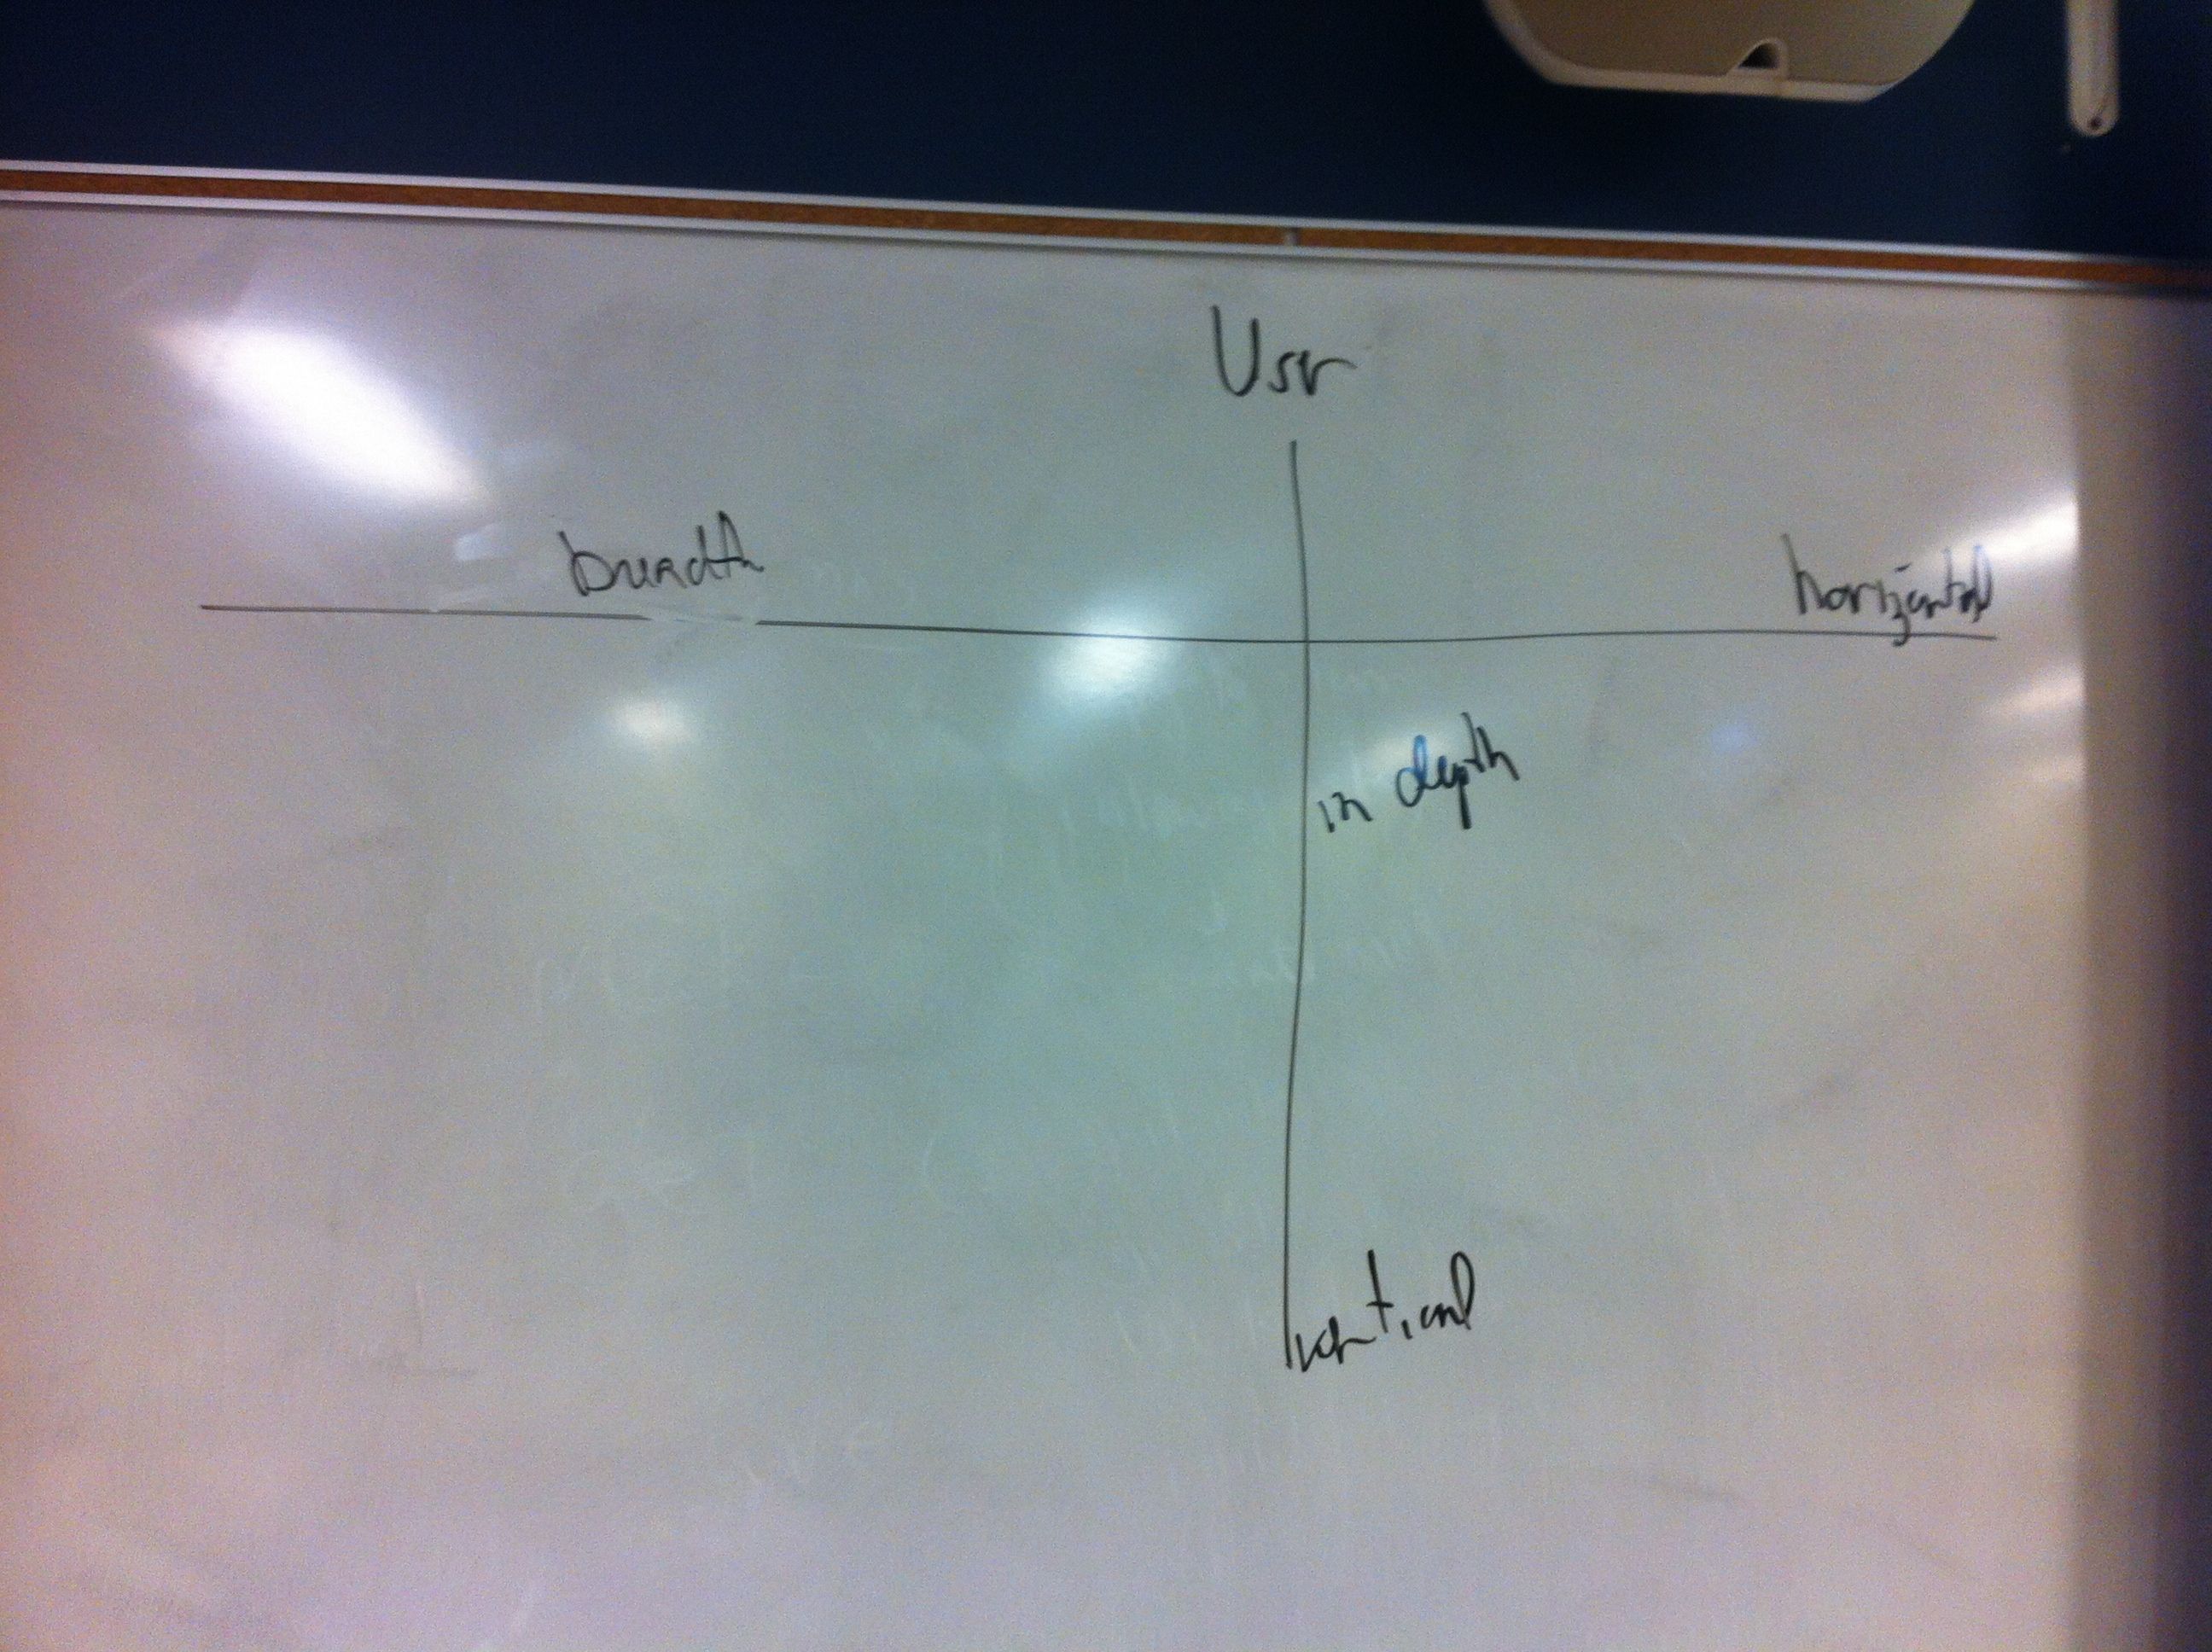 Usr
breadth
horizontal
in depth
vertical